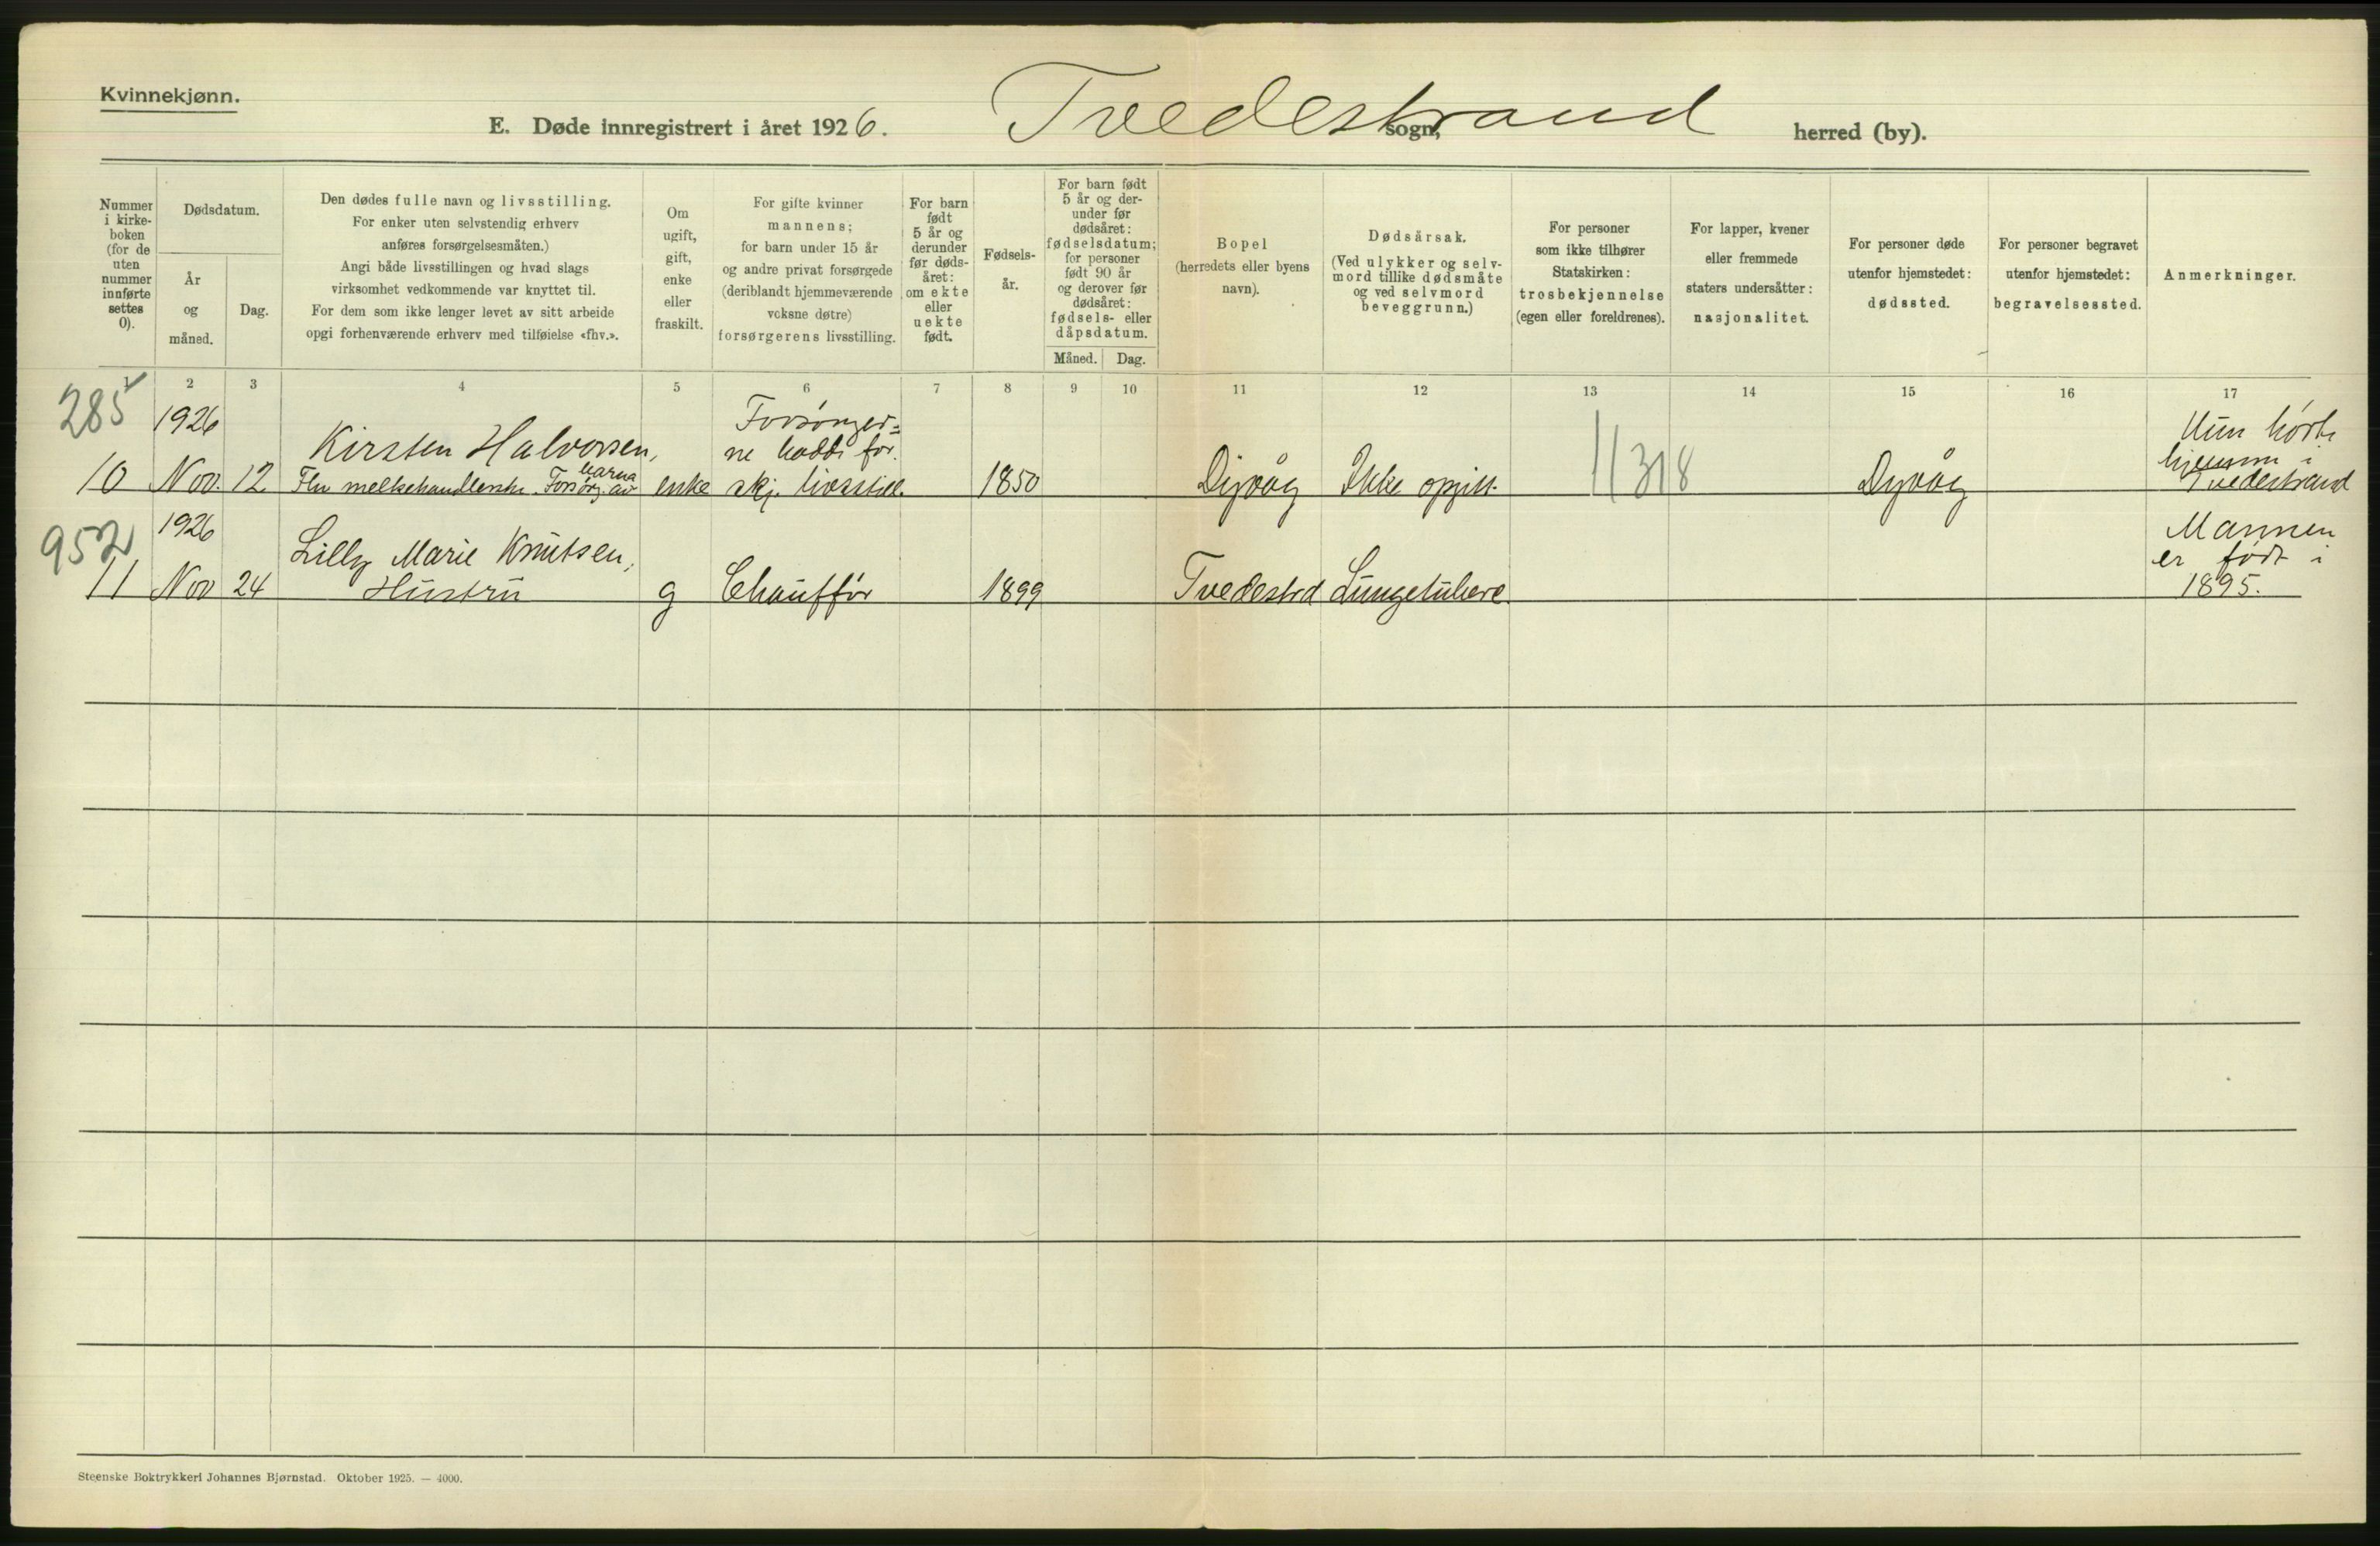 Kvinnekjønn.
E. Døde innregistrert i året 1926. Tvedestrand sogn, herred (by).
Nummer i kirke- boken (for de uten nummer innførte settes 0).
Dødsdatum.
År og måned.
Dag.
Den dødes fulle navn og livsstilling.
For enker uten selvstendig erhverv
anføres forsørgelsesmåten.)
Angi både livsstillingen og hvad slags
virksomhet vedkommende var knyttet til.
For dem som ikke lenger levet av sitt arbeide
opgi forhenværende erhverv med tilføielse «fhv.».
Om
ugift,
gift,
enke
eller
fraskilt.
For gifte kvinner
mannens;
for barn under 15 år
og andre privat forsørgede
(deriblandt hjemmeværende
voksne døtre)
forsørgerens livsstilling.
For barn
født
5 år og
derunder
før døds-
året:
om ekte
eller
uekte
født.
Fødsels-
år.
For barn født
5 år og der-
under før
dødsåret:
fødselsdatum;
for personer
født 90 år
og derover før
dødsåret:
fødsels- eller
dåpsdatum.
Måned. Dag.
Bopel
(herredets eller byens
navn).
Dødsårsak.
(Ved ulykker og selv-
mord tillike dødsmåte
og ved selvmord
beveggrunn.)
For personer
som ikke tilhører
Statskirken:
trosbekjennelse
(egen eller foreldrenes).
For lapper, kvener
eller fremmede
staters undersåtter:
nasjonalitet.
For personer døde
utenfor hjemstedet:
dødssted.
For personer begravet
utenfor hjemstedet:
begravelsessted.
Anmerkninger.
1 2 3 4 5 6 7 8 9 10 11 12 13 14 15 16 17
285
1926 Forsörger= Hun hörte
Kirsten Halvorsen, ne hadde for. hjemme i
10 Nov. 12 Fhv melkehandlerske. Forsörg. av barna enke skj. livsstill. 1850 Dijvåg Ikke opgitt. 318 Dyvåg Tvedestrand
952
1926 Mannen
Lilly Marie Knutsen, er födt i
11 Nov 24 Hustru g Chaufför 1899 Tvedestrd Lungetuberc. 1895.
Steenske Boktrykkeri Johannes Bjørnstad. Oktober 1925. — 4000.